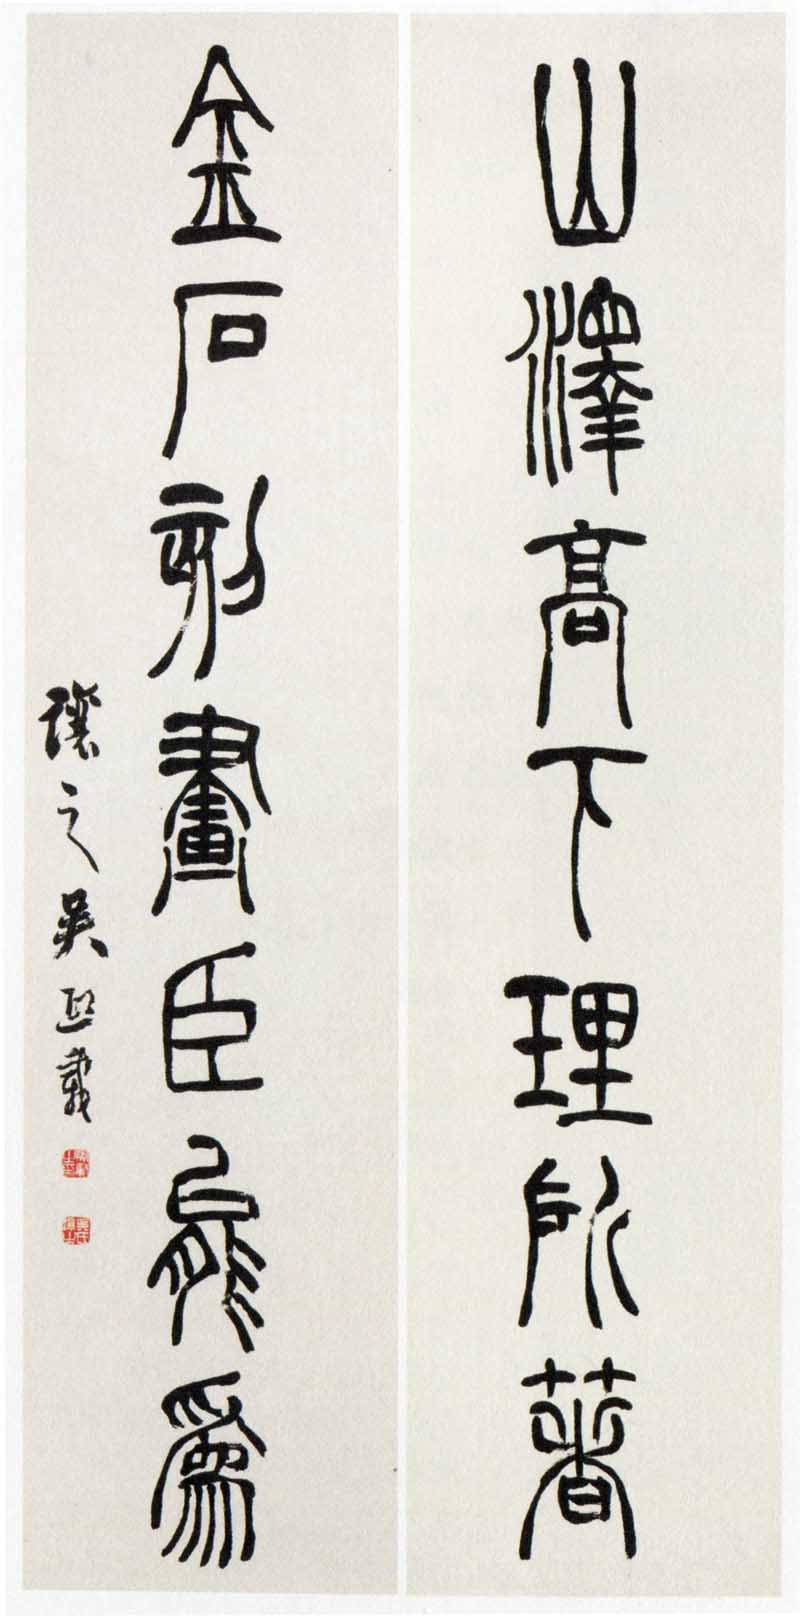 山澤高下理所著
金石刻畫臣能為
讓之吳熙載